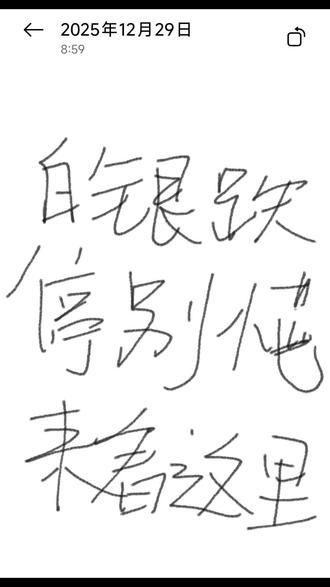 2025年12月29日
8:59
白银跌
停别慌
来看这里